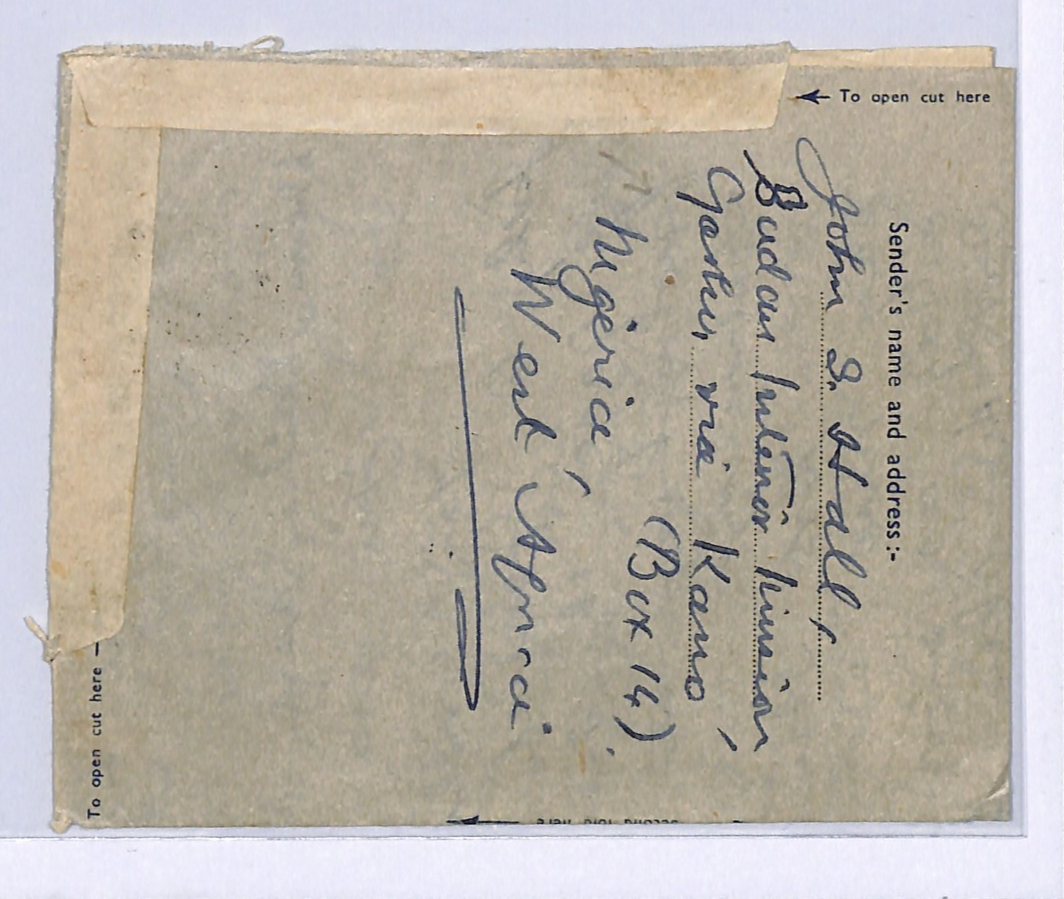 To open cut here
Sender's name and address:-
John S. Hall,
Sudan Interior Mission,
via Kano
(Box 14),
Nigeria,
West Africa
To open cut here
Second fold here